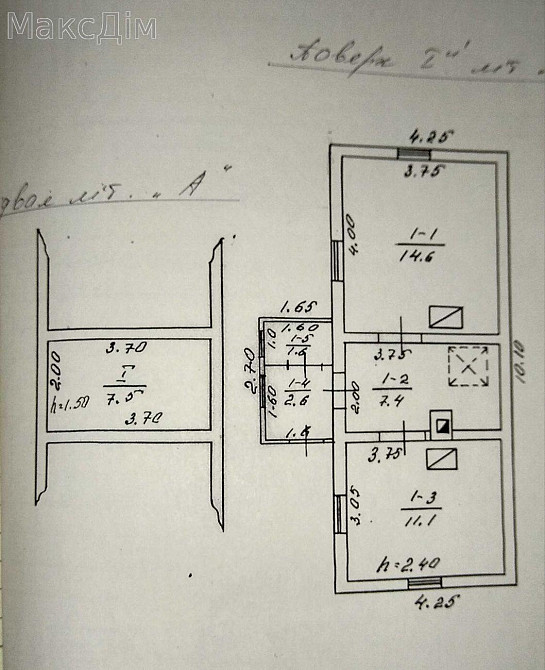 МаксДім
Поверх I"" літ.
двал літ. "А"
4.25
3.75
4.00
1-1
14.6
1.65
1.60
1.0
1-5
1.6
2.70
1-4
2.6
1.60
1.6
3.75
1-2
7.4
2.00
10.10
3.75
3.05
1-3
11.1
h=2.40
4.25
3.70
2.00
I
7.5
h=1.50
3.70